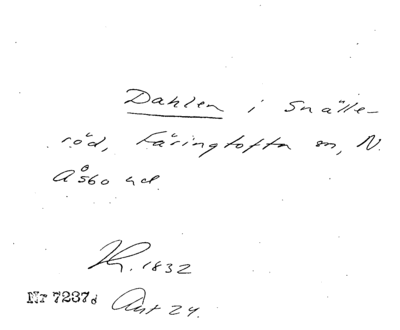 Dahlen i Snälle-
röd, Färingtofta sn, N.
Åsbo hd.
Kr. 1832
Nr 7237d Ant 24.